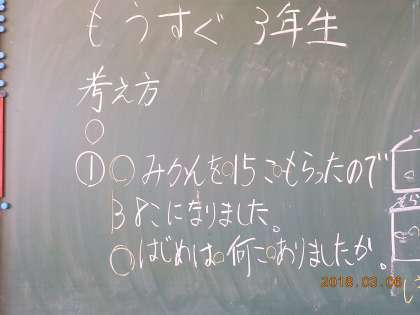 もうすぐ 3年生
考え方
○
① ○ みかんを 15こもらったので
38こになりました。
○ はじめは 何こありましたか。
2018.03.06